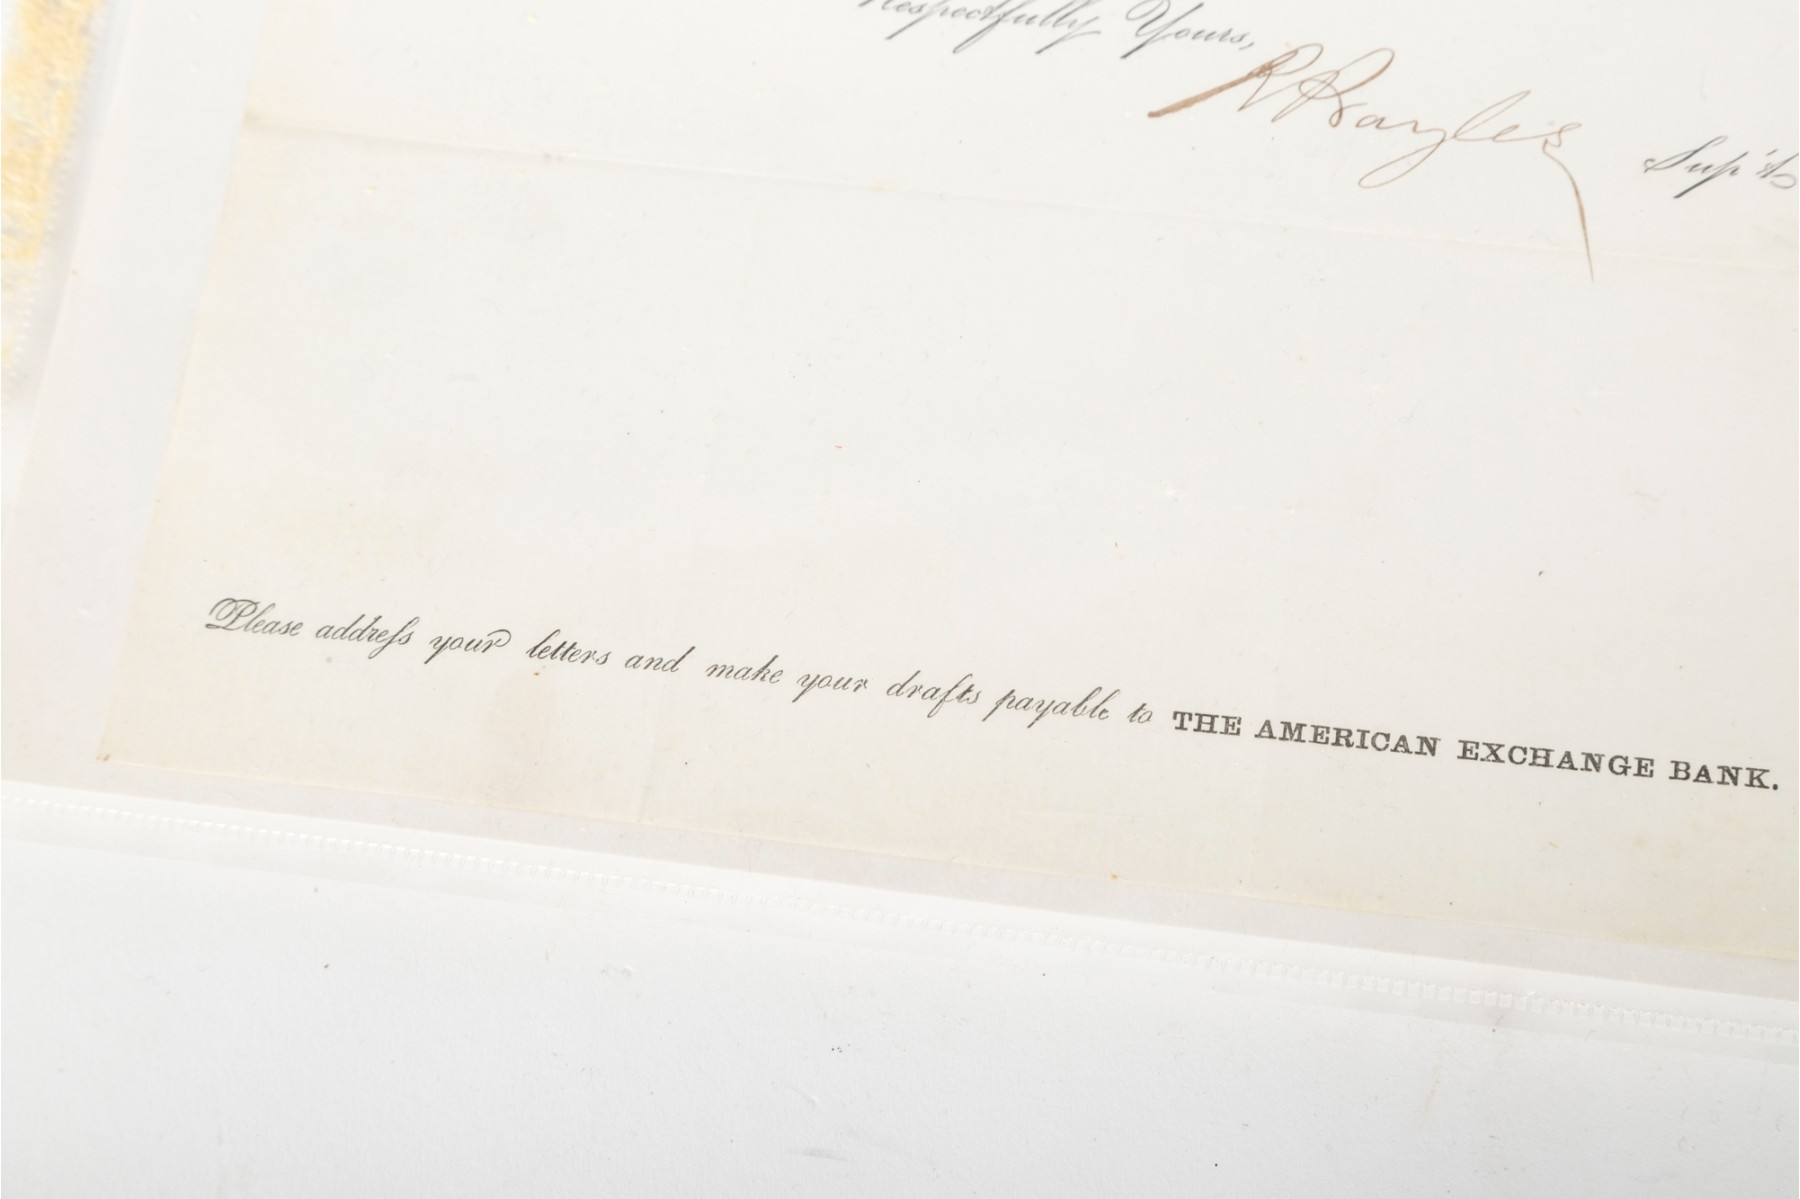 Respectfully Yours,
R Rayles Sup't
Please address your letters and make your drafts payable to THE AMERICAN EXCHANGE BANK.